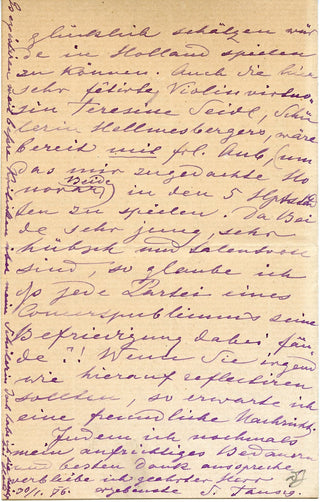 glücklich schätzen wür
de in Holland spielen
zu können. Auch die hier
sehr fêtirte Violinvirtuo
sin Teresine Seidl, Schü
lerin Hellmesbergers, wäre
bereit mit frl. Aub, (um
das mir zugedachte Ho
norar) Beide in den 5 Hptstäd
ten zu spielen. Da Bei
de sehr jung, sehr
hübsch und talentvoll
sind, so glaube ich
jede Partei eines
Concertpublikums seine
Befriedigung dabei fän
de!! Wenn Sie irgend
wie hierauf reflectiren
sollten, so erwarte ich
eine freundliche Nachricht.
Indem ich nochmals
mein aufrichtiges Bedauern
und besten Dank ausspreche
verbleibe ich geehrter Herr
29/1. 76. ergebenste S. Tausig.